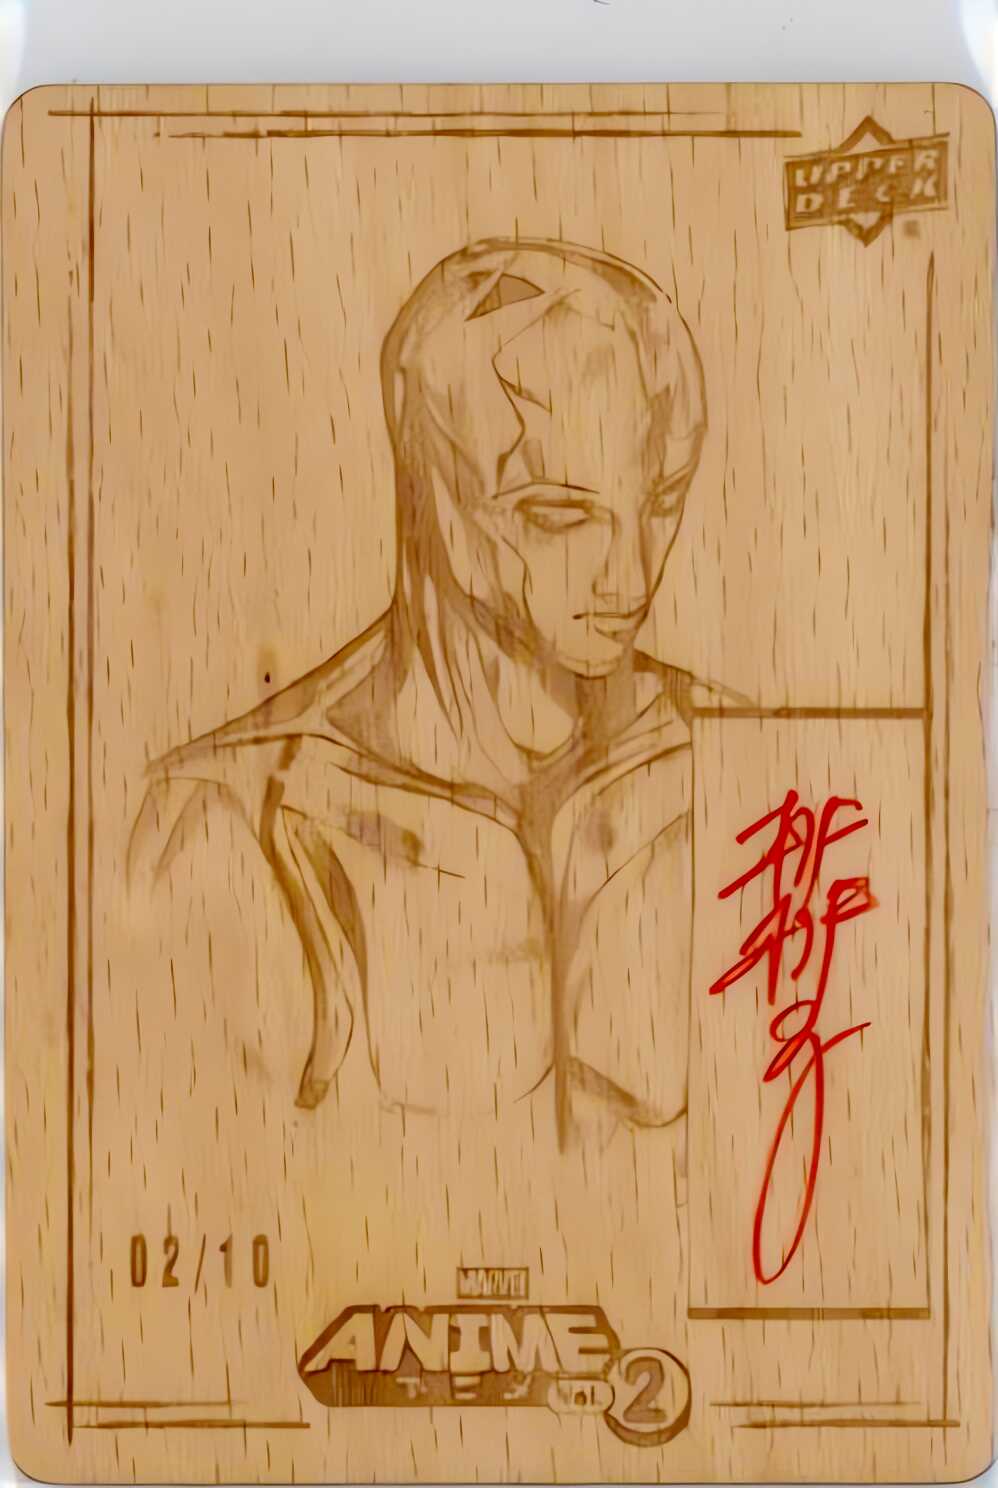 UPPER
DECK
02/10
MARVEL
ANIME
VOL. 2